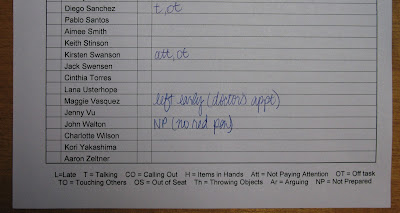 Diego Sanchez t, ot
Pablo Santos
Aimee Smith
Keith Stinson
Kirsten Swanson att, ot
Jack Swensen
Cinthia Torres
Lana Usterhope
Maggie Vasquez left early (doctors appt)
Jenny Vu
John Walton NP (no red pen)
Charlotte Wilson
Kori Yakashima
Aaron Zeltner
L=Late T = Talking CO = Calling Out H = Items in Hands Att = Not Paying Attention OT = Off task
TO = Touching Others OS = Out of Seat Th = Throwing Objects Ar = Arguing NP = Not Prepared